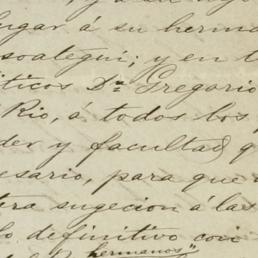 lugar á su herma
soategui; y en t
íticos Dn Gregorio
Rio, á todos los
der y facultad q
esario, para que
tera sugecion á las
lo definitivo con
hermanos"